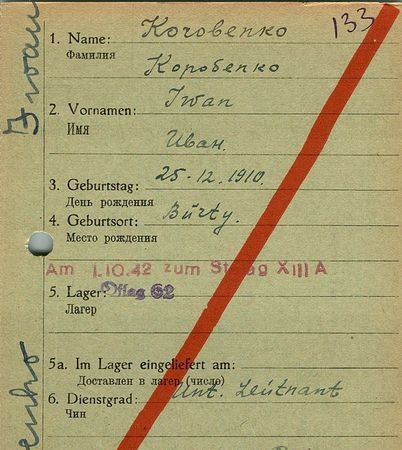 133
1. Name: Коговепко
Фамилия
Коробепко
2. Vornamen: Iwan
Имя
Иван.
3. Geburtstag: 25-12.1910.
День рождения
4. Geburtsort: Bŭrty.
Место рождения
Am 1.10.42 zum Stalag XIII A
5. Lager: Oflag 62
Лагер
5a. Im Lager eingeliefert am:
Доставлен в лагер (число)
6. Dienstgrad: Unt. Leŭtnant
Чин
Iwan
enko